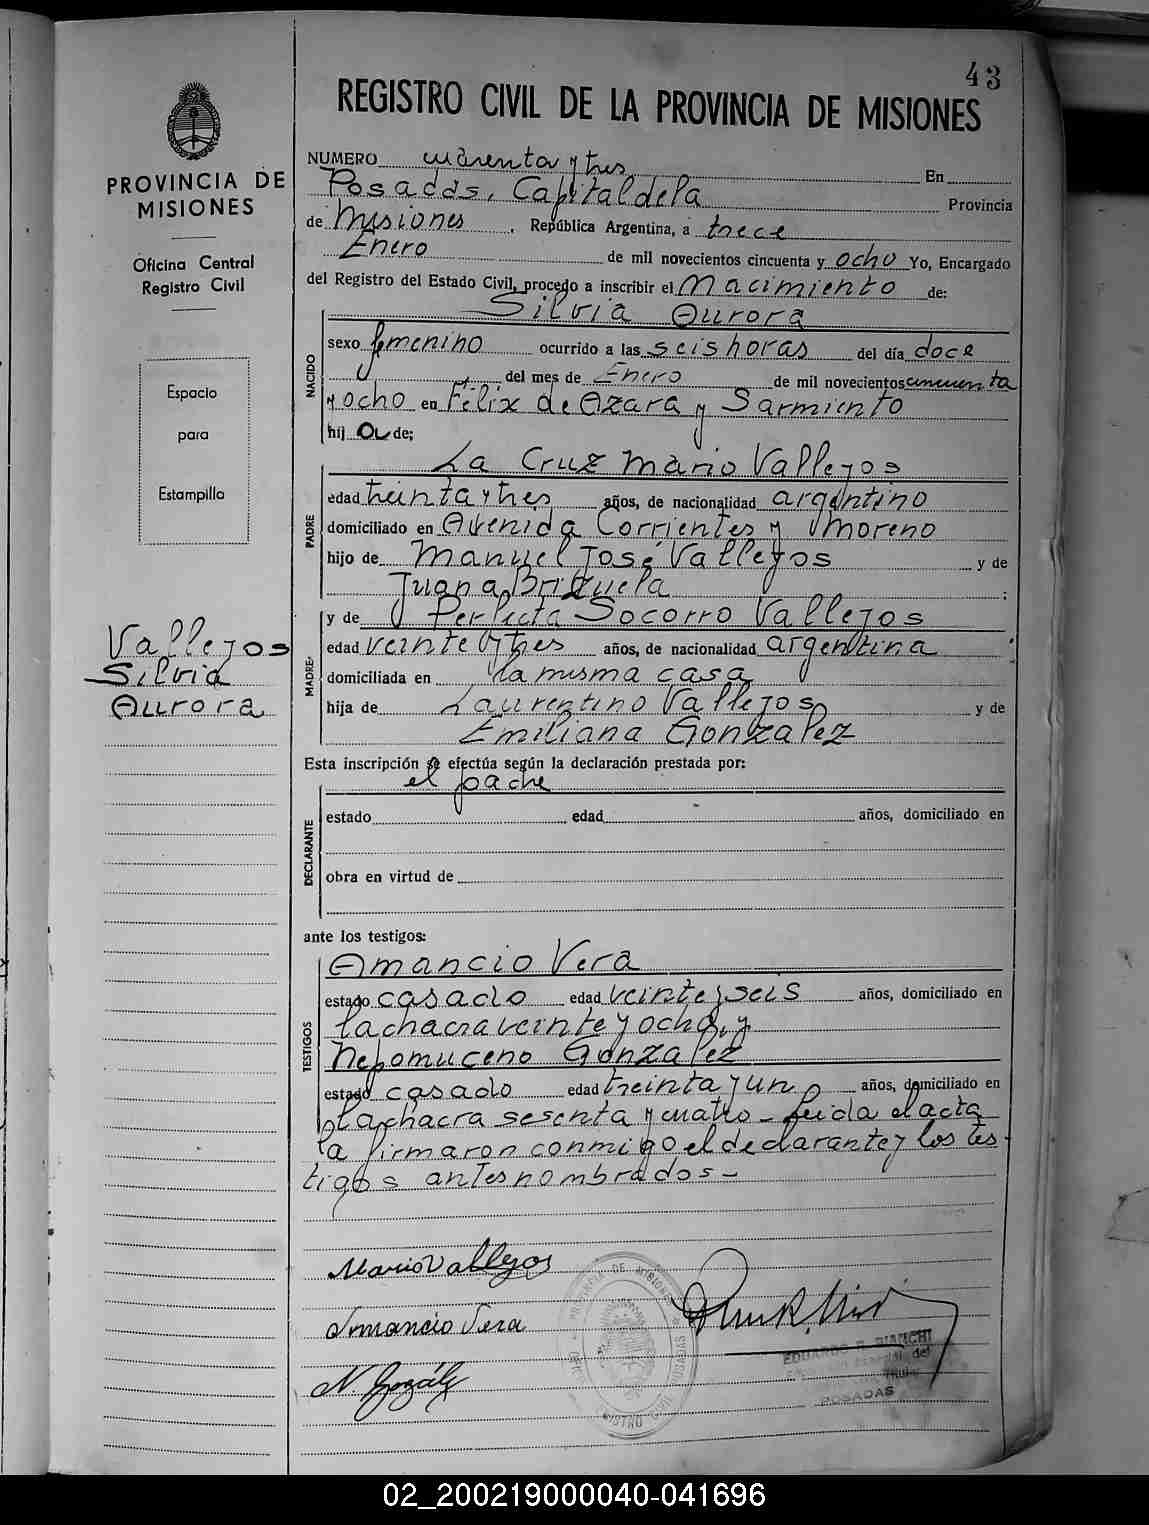 43
REGISTRO CIVIL DE LA PROVINCIA DE MISIONES
PROVINCIA DE
MISIONES
Oficina Central
Registro Civil
Espacio
para
Estampilla
Vallejos
Silvia
Aurora
NUMERO cuarenta y tres En
Posadas, Capital de la Provincia
de Misiones, República Argentina, a trece
Enero de mil novecientos cincuenta y ocho Yo, Encargado
del Registro del Estado Civil, procedo a inscribir el Nacimiento de:
Silvia Aurora
NACIDO
sexo femenino ocurrido a las seis horas del día doce
del mes de Enero de mil novecientos cincuenta
y ocho en Félix de Azara y Sarmiento
hij a de;
La Cruz Mario Vallejos
PADRE
edad treinta y tres años, de nacionalidad argentino
domiciliado en Avenida Corrientes y Moreno
hijo de Manuel José Vallejos y de
Juana Brizuela ;
y de Perfecta Socorro Vallejos
MADRE
edad veinte y tres años, de nacionalidad argentina
domiciliada en la misma casa
hija de Laurentino Vallejos y de
Emiliana Gonzalez
Esta inscripción se efectúa según la declaración prestada por:
el padre
DECLARANTE
estado edad años, domiciliado en
obra en virtud de
ante los testigos:
Amancio Vera
TESTIGOS
estado casado edad veinte y seis años, domiciliado en
la chacra veinte y ocho, y
Nepomuceno Gonzalez
estado casado edad treinta y un años, domiciliado en
la chacra sesenta y cuatro - Leida el acta
la firmaron conmigo el declarante y los tes-
tigos antes nombrados -
Mario Vallejos
Amancio Vera
N. Gonzáls
EDUARDO R. BIANCHI
POSADAS
02_200219000040-041696